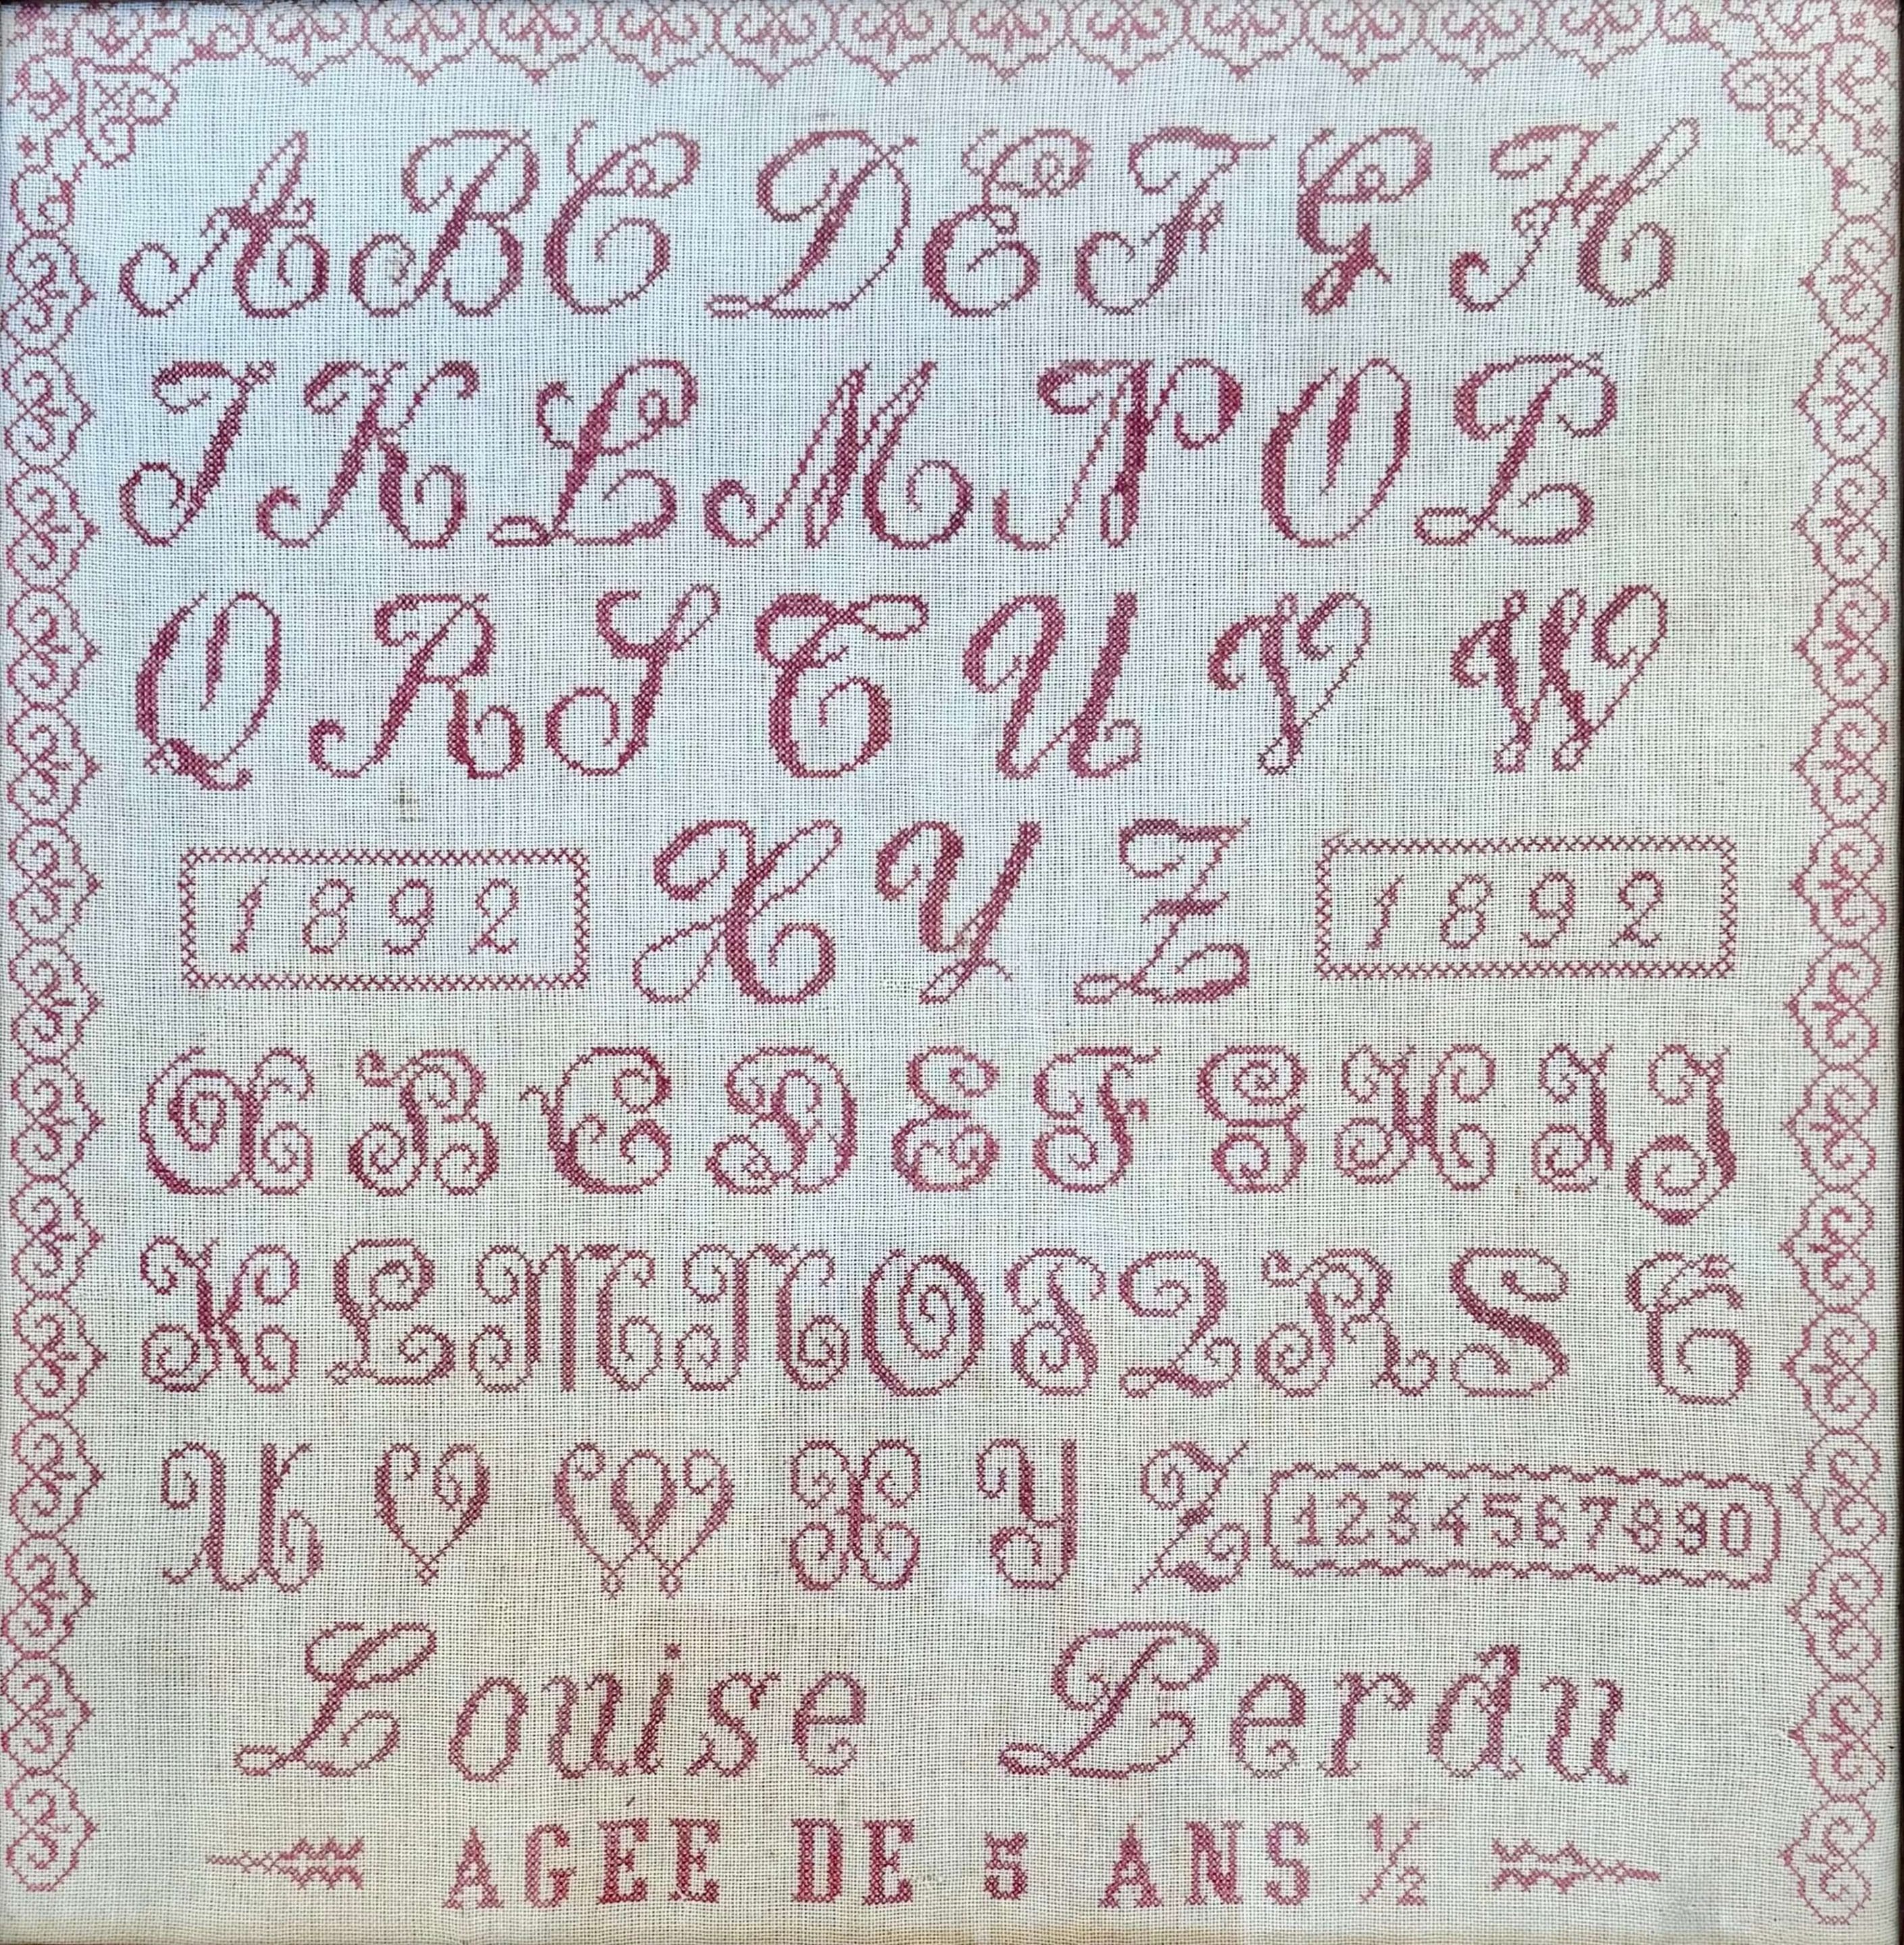 A B C D E F G H
I K L M N O P
Q R S T U V W
1892 X Y Z 1892
A B C D E F G H I J
K L M N O P Q R S T
U V W X Y Z 1234567890
Louise Perdu
AGÉE DE 5 ANS 1/2